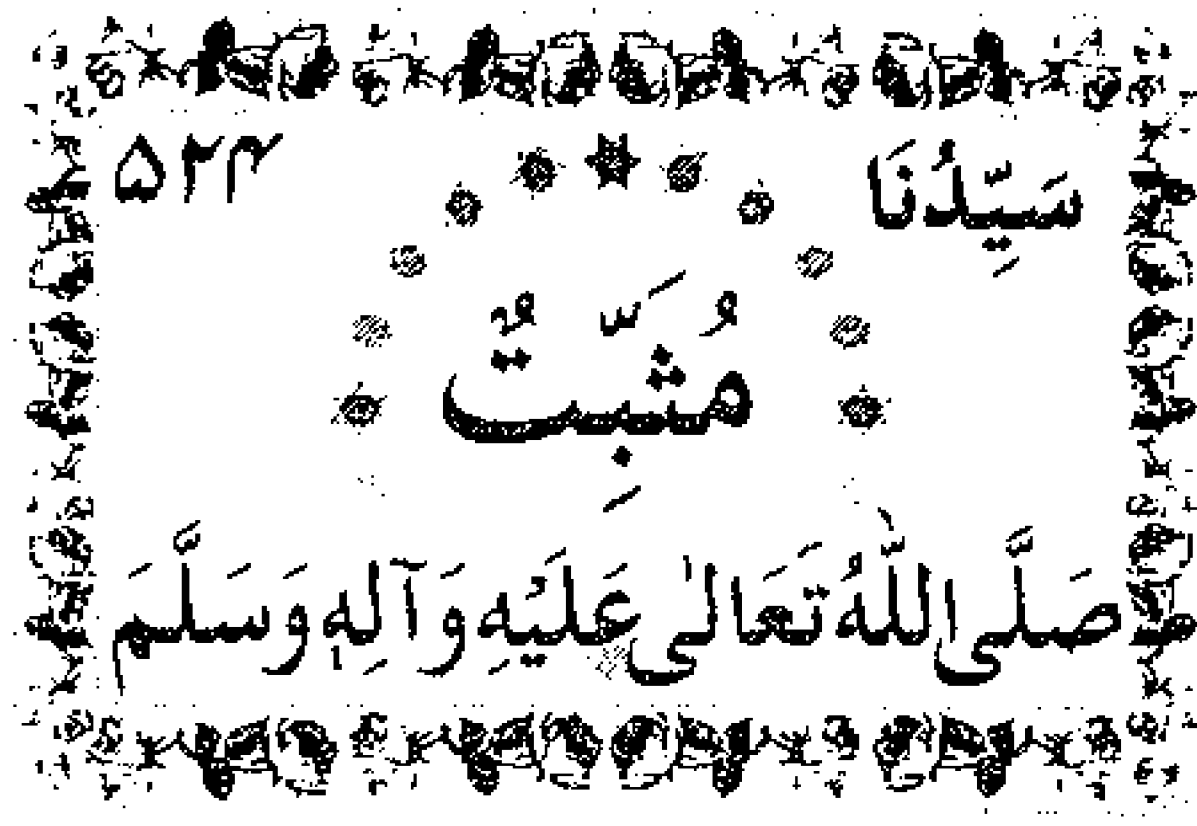 سَيِّدُنَا ۵۲۴
مُثَبِّتٌ
صَلَّى اللّٰهُ تَعَالٰى عَلَيْهِ وَآلِهٖ وَسَلَّمَ